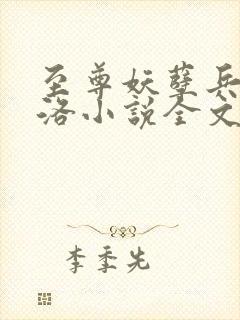 至尊妖孽兵
洛小说全文
李季先